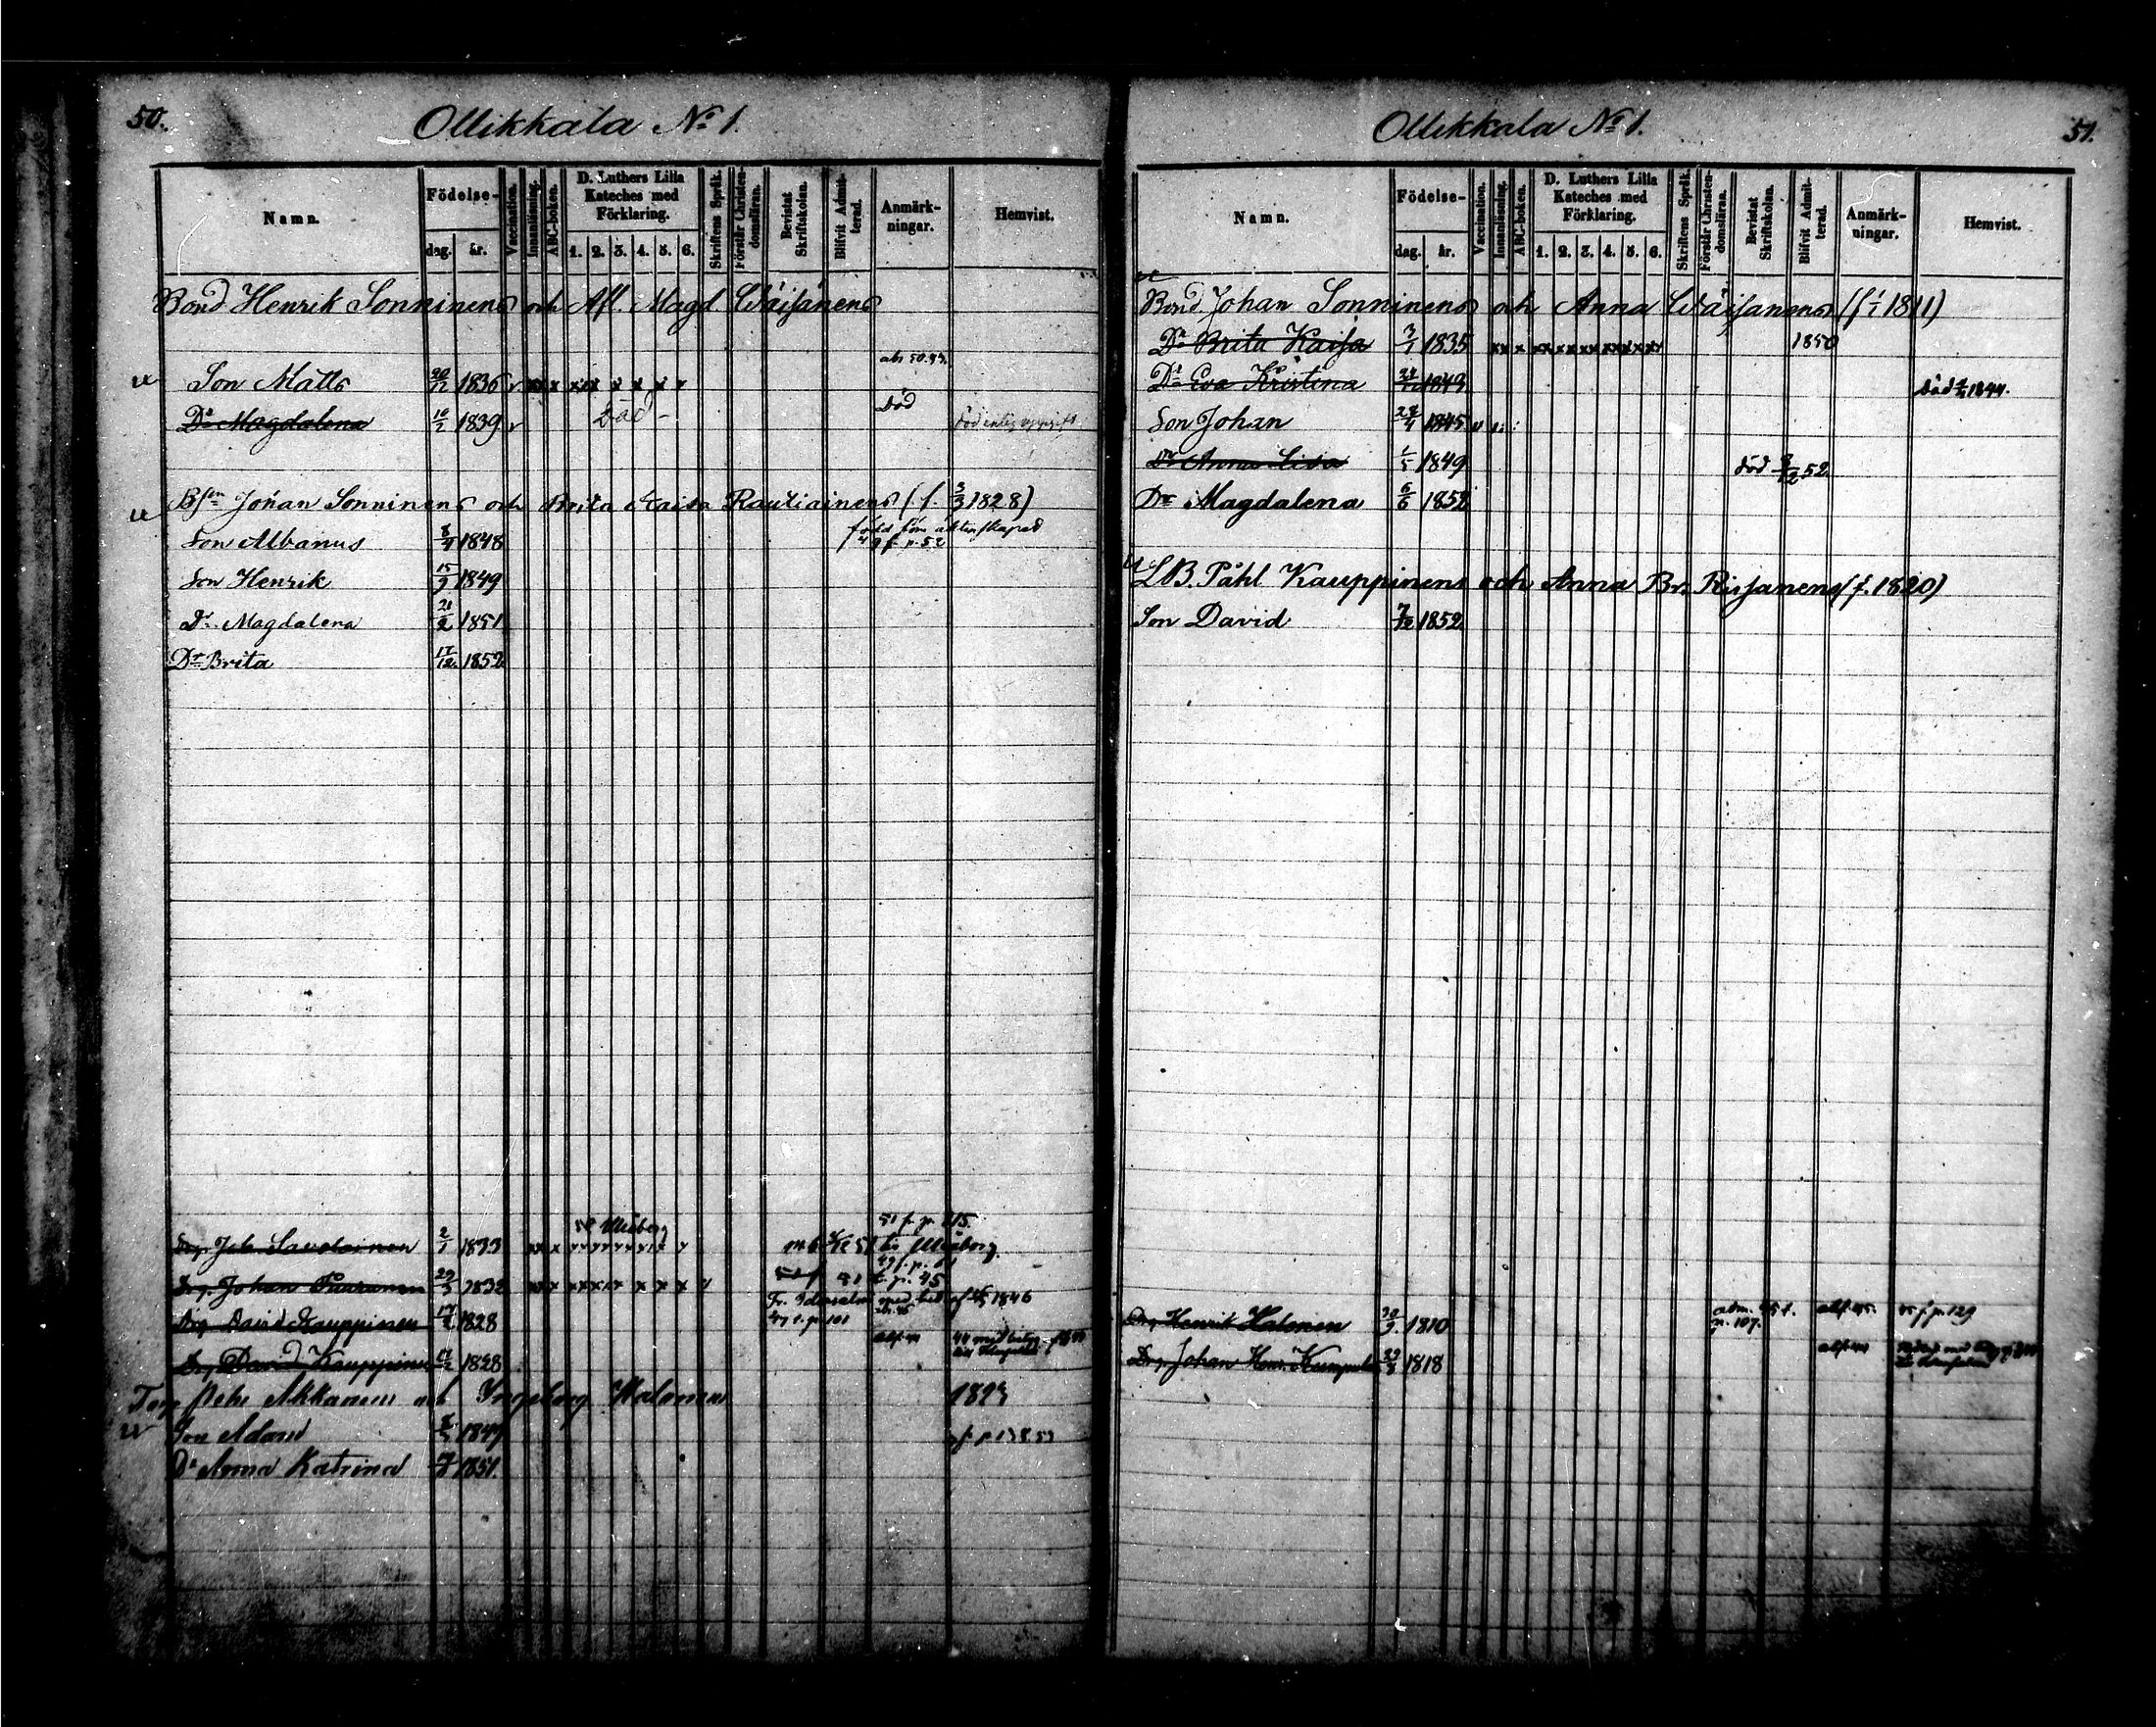 50.
Ollikkala No 1.
Namn.
Födelse-
dag. år.
Vaccination.
Innanläsning.
ABC-boken.
D. Luthers Lilla Kateches med Förklaring.
1. 2. 3. 4. 5. 6.
Skriftens Språk.
Förstår Christen-domsläran.
Bevistat Skriftskolan.
Blifvit Admit-terad.
Anmärk-ningar.
Hemvist.
Bond Henrik Sonninens och Afl. Magd. Wäisänens
Son Matts 20/12 1836 v x x x x x x x
Dr Magdalena 10/2 1839 v Död Död
Bsn Johan Sonninens och Brita Kaisa Rautiainens (f. 3/3 1828)
Son Albanus 8/4 1848 född före äktenskapet
Son Henrik 15/9 1849
Dr Magdalena 21/2 1851
Dr Brita 17/12 1852
51 f. p. 115.
Uleåborg
Drg. Joh. Savolainen 2/1 1833 till Uleåborg
Drg. Johan 29/5 1832 51 f. p. 45
Drg David Kauppinen 17/2 1828 1846
Drg David Kauppinen 17/2 1828
Pehr Akkanen och Ingeborg Halonen 1823
Son Adam 1849
Dr Anna Katrina 1851.
51.
Ollikkala No 1.
Namn.
Födelse-
dag. år.
Vaccination.
Innanläsning.
ABC-boken.
D. Luthers Lilla Kateches med Förklaring.
1. 2. 3. 4. 5. 6.
Skriftens Språk.
Förstår Christen-domsläran.
Bevistat Skriftskolan.
Blifvit Admit-terad.
Anmärk-ningar.
Hemvist.
Bond Johan Sonninens och Anna Wäisänens (f 1/1 1811)
Dr Brita Kaisa 3/1 1835 xx x xx xx xx xx xx xx 1850
Dr Eva Kristina 1843 Död 1844.
Son Johan 1845 v
Dr Anna Lisa 1/5 1849 död 52
Dr Magdalena 6/6 1852
LB. Påhl Kauppinens och Anna Br. Riisanens (f. 1820)
Son David 7/12 1852
Drg Henrik Halonen 1810 45 f. p. 129
Drg. Johan Henr. 1818